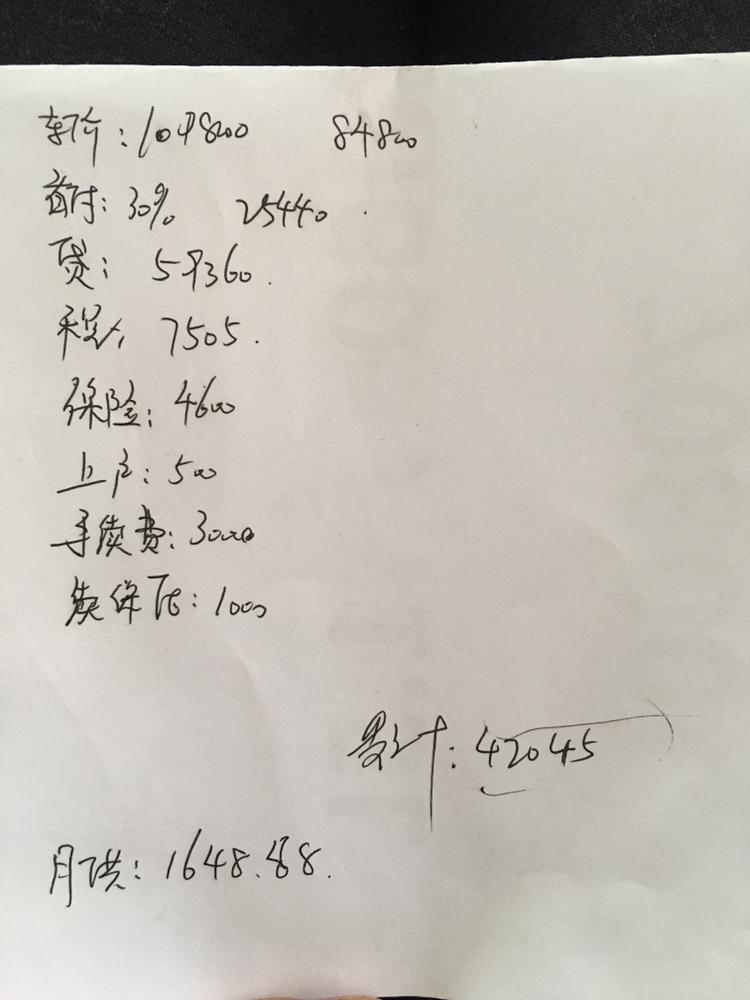 车价：109800 84800
首付：30% 25440.
贷：59360.
税：7505.
保险：4600
上户：500
手续费：3000
续保压：1000
累计：42045
月供：1648.88.